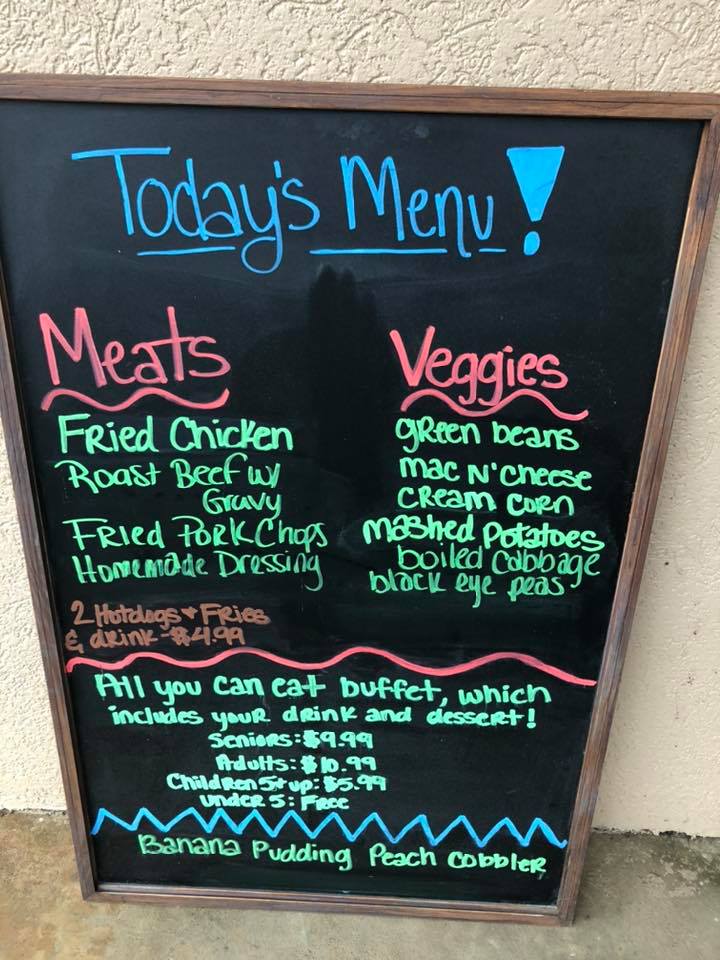 Today's Menu!
Meats
Fried Chicken
Roast Beef w/
Gravy
Fried Pork Chops
Homemade Dressing
2 Hotdogs + Fries
& drink - $4.99
Veggies
green beans
mac N' cheese
cream corn
mashed potatoes
boiled cabbage
black eye peas
All you can eat buffet, which
includes your drink and dessert!
Seniors: $9.99
Adults: $10.99
Children 5+ up: $5.99
under 5: Free
Banana Pudding Peach cobbler